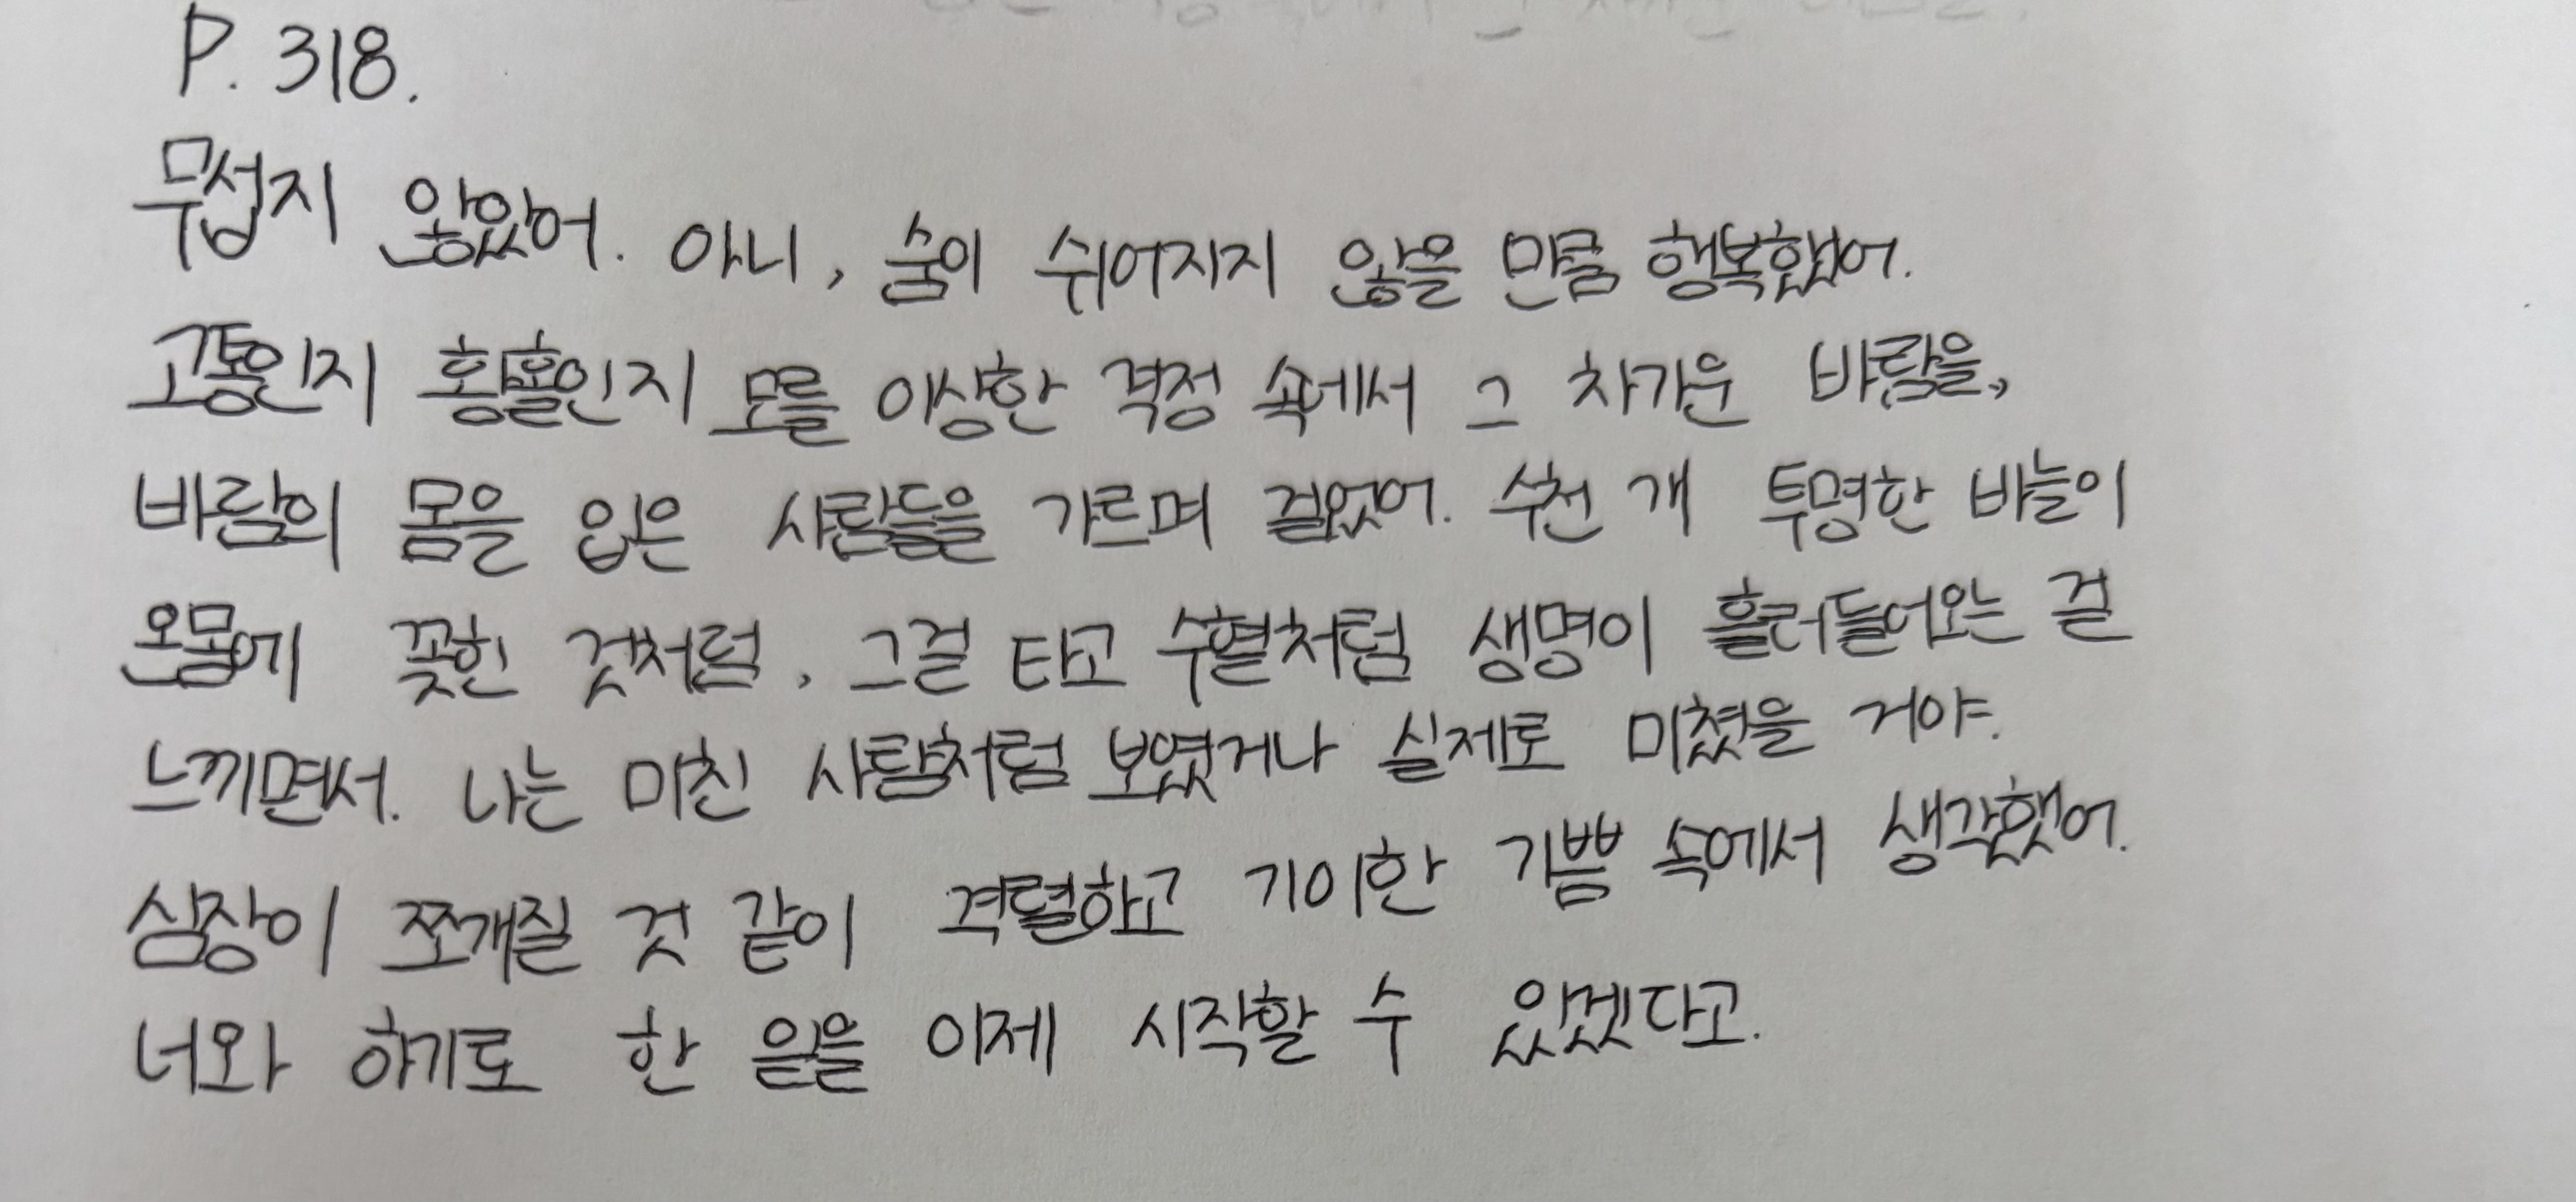 P. 318.
무섭지 않았어. 아니, 숨이 쉬어지지 않을 만큼 행복했어.
고통인지 황홀인지 모를 이상한 격정 속에서 그 차가운 바람을,
바람의 몸을 입은 사람들을 가르며 걸었어. 수천 개 투명한 바늘이
온몸에 꽂힌 것처럼, 그걸 타고 수혈처럼 생명이 흘러들어오는 걸
느끼면서. 나는 미친 사람처럼 보였거나 실제로 미쳤을 거야.
심장이 쪼개질 것 같이 격렬하고 기이한 기쁨 속에서 생각했어.
너와 하기로 한 일을 이제 시작할 수 있겠다고.